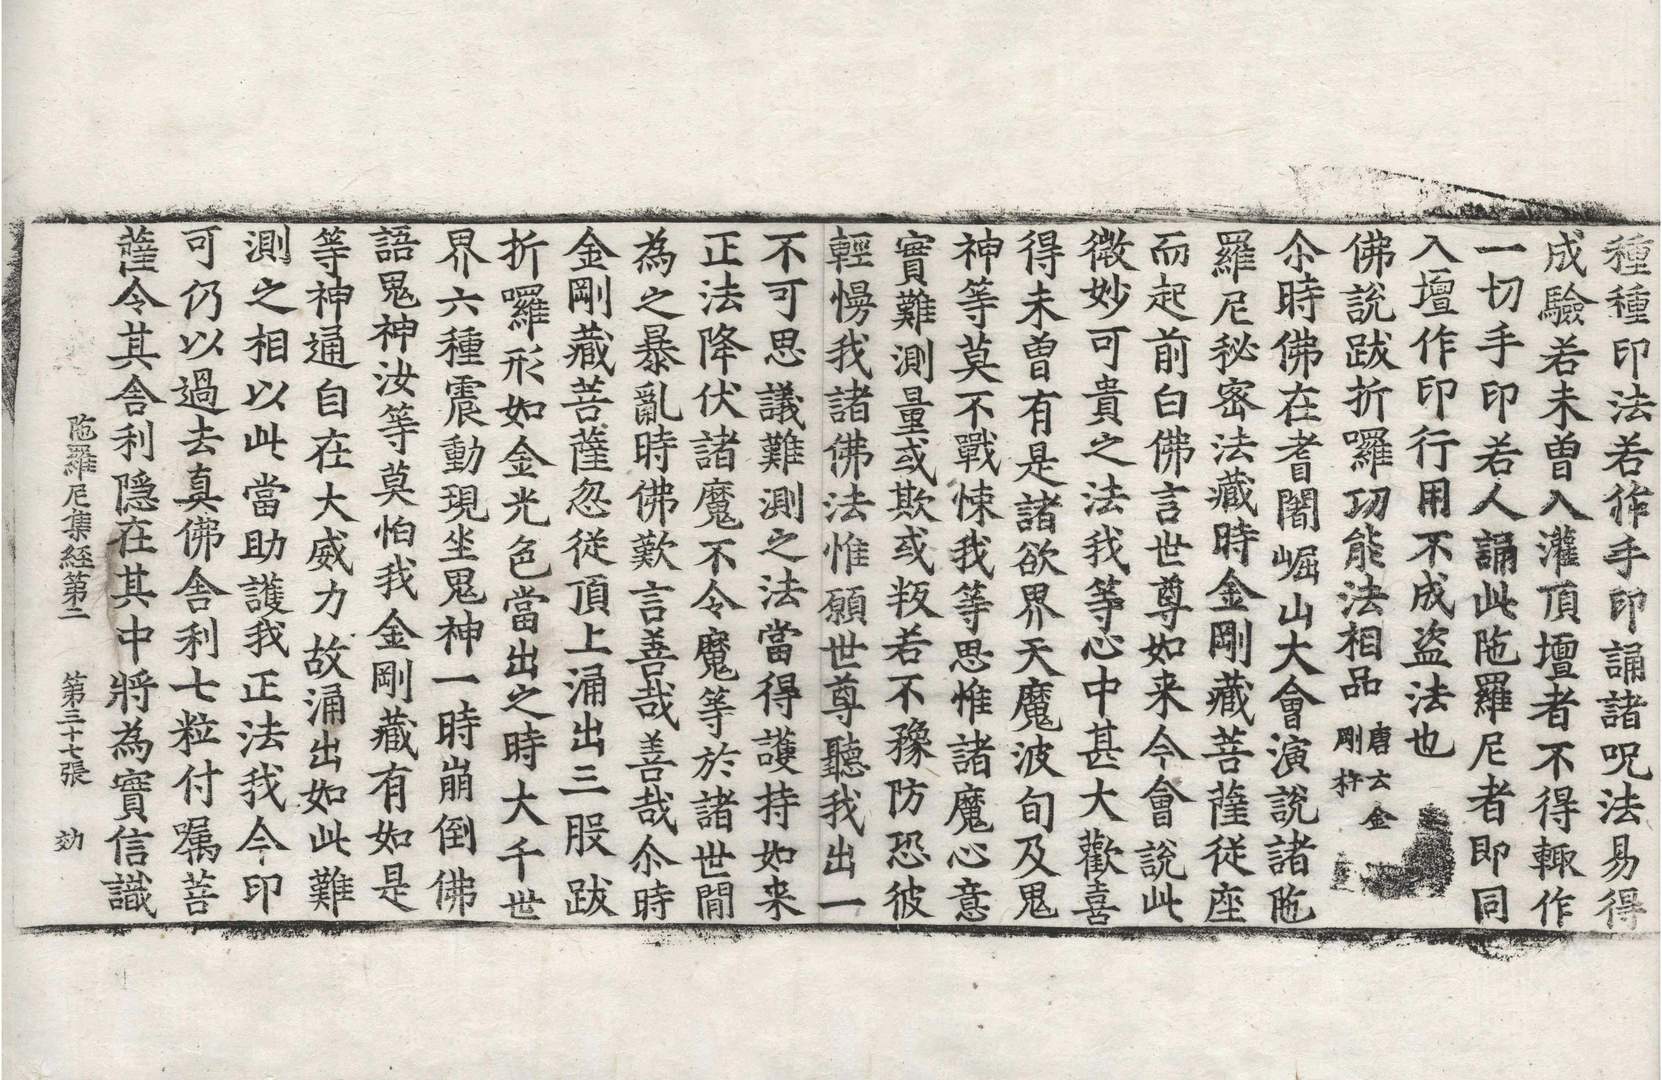 種種印法若作手印誦諸呪法易得
成驗若未曾入灌頂壇者不得輙作
一切手印若人誦此陁羅尼者即同
入壇作印行用不成盗法也
佛說跋折囉功能法相品唐云金剛杵
尒時佛在耆闍崛山大會演說諸陁
羅尼秘密法藏時金剛藏菩薩從座
而起前白佛言世尊如来今會說此
微妙可貴之法我等心中甚大歡喜
得未曾有是諸欲界天魔波旬及鬼
神等莫不戰悚我等思惟諸魔心意
實難測量或欺或叛若不豫防恐彼
輕慢我諸佛法惟願世尊聽我出一
不可思議難測之法當得護持如来
正法降伏諸魔不令魔等於諸世間
為之暴亂時佛歎言善哉善哉尒時
金剛藏菩薩忽從頂上涌出三股跋
折囉形如金光色當出之時大千世
界六種震動現坐鬼神一時崩倒佛
語鬼神汝等莫怕我金剛藏有如是
等神通自在大威力故涌出如此難
測之相以此當助護我正法我今印
可仍以過去真佛舎利七粒付嘱菩
薩令其舎利隠在其中將為寶信識
陁羅尼集經第二 第三十七張 効